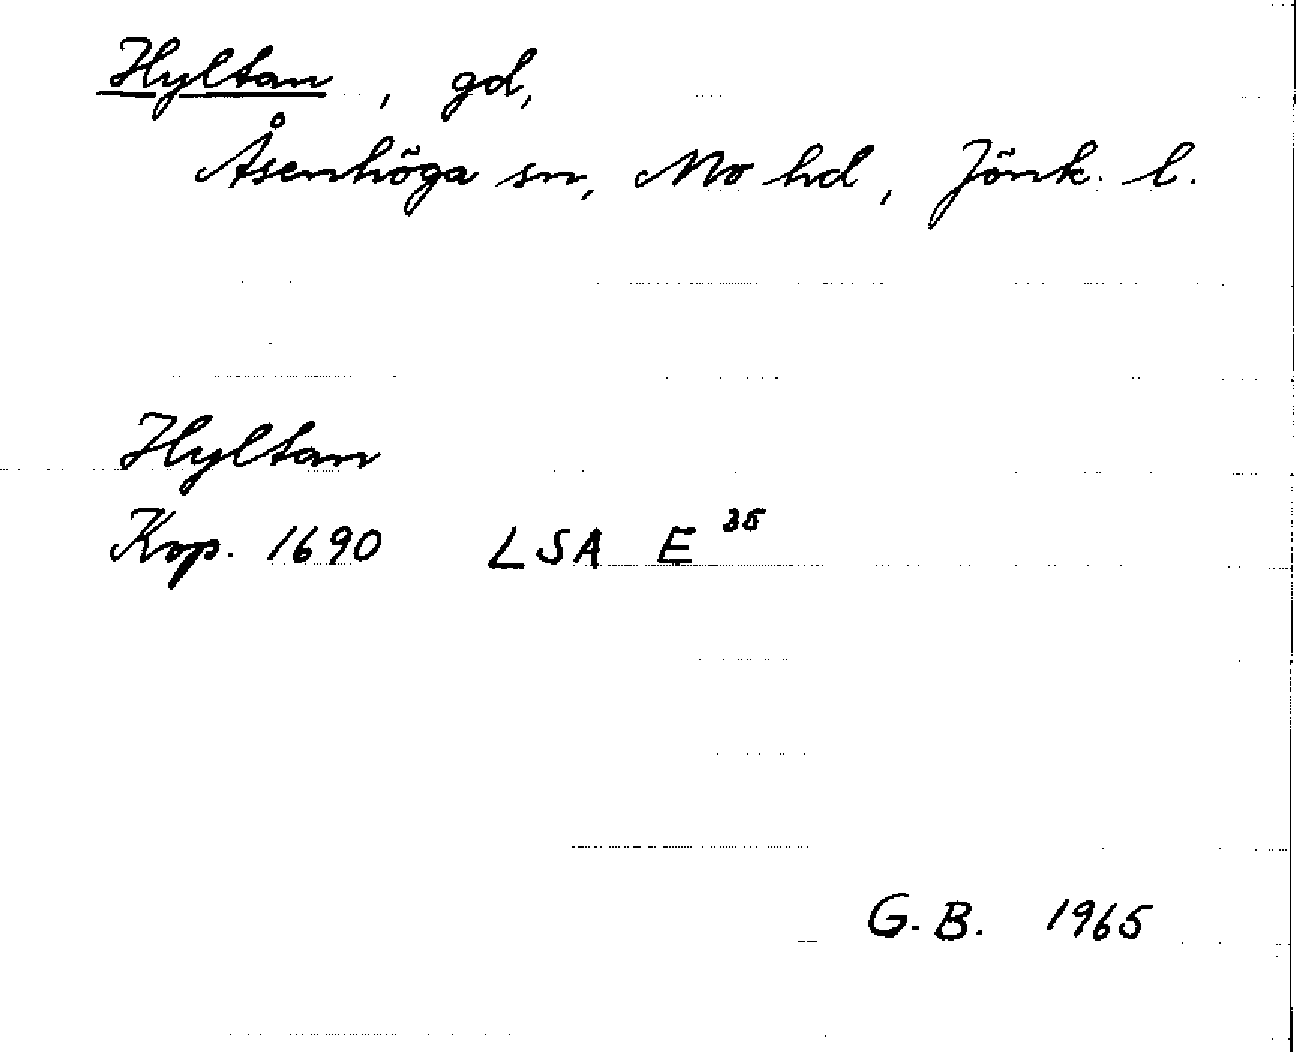 Hyltan, gd,
Åsenhöga sn, Mo hd, Jönk. l.
Hyltan
Kop. 1690 LSA E 35
G. B. 1965